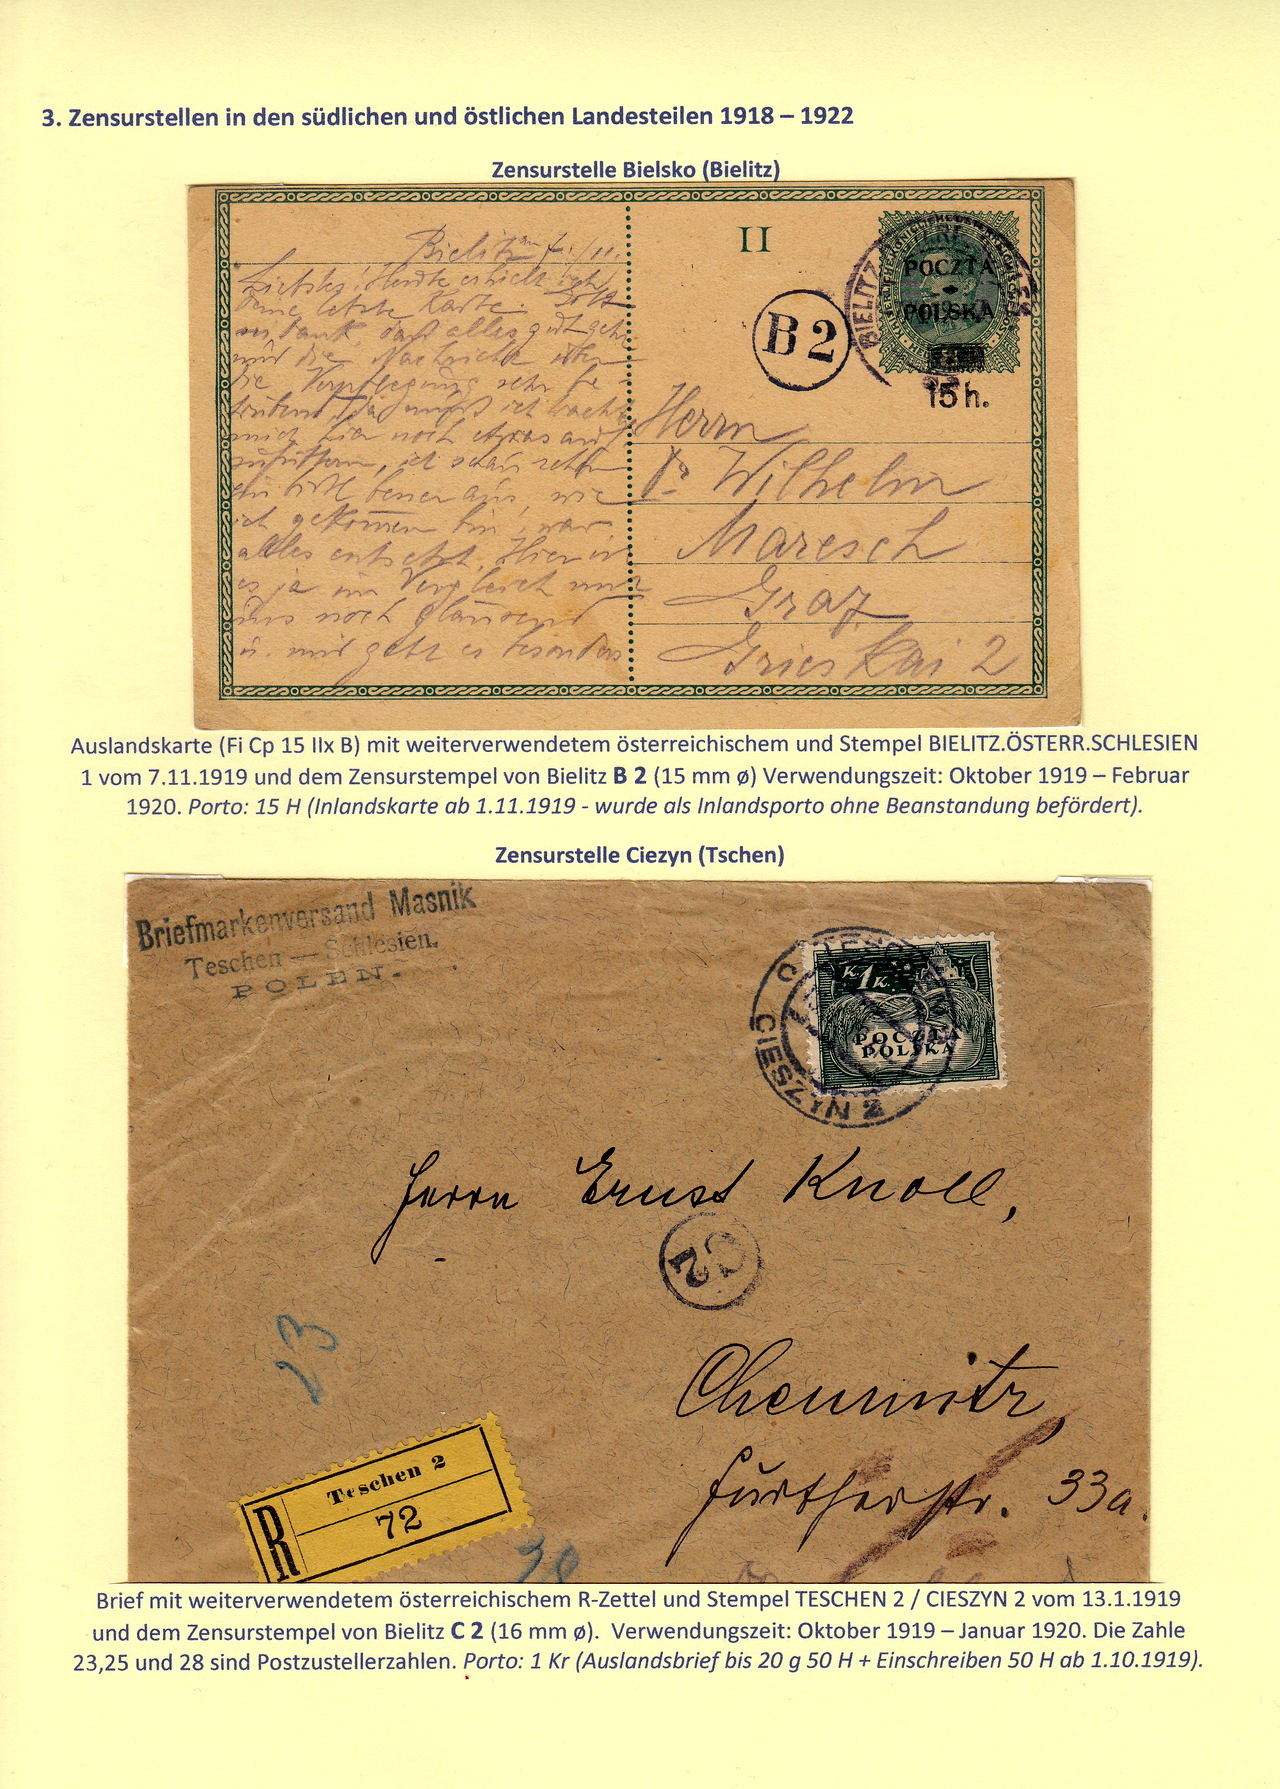 3. Zensurstellen in den südlichen und östlichen Landesteilen 1918 – 1922
Zensurstelle Bielsko (Bielitz)
II
BIELITZ
POCZTA
POLSKA
15 h.
B 2
Bielitz am 7./11.
Liebster! Heute erhielt ich
Deine letzte Karte. Gott
sei Dank, daß alles gut geht
nur die Nachricht über
die Verpflegung sehr be-
trübend. Da muß ich
mich hier noch etwas auf-
zufüttern, ich schau schon
ein bissl besser aus, wie
ich gekommen bin, war
alles entsetzt. Hier ist
es ja im Vergleich mit
uns noch glänzend
u. mir geht es besonders
Herrn
Dr Wilhelm
Maresch
Graz
Grieskai 2
Auslandskarte (Fi Cp 15 IIx B) mit weiterverwendetem österreichischem und Stempel BIELITZ.ÖSTERR.SCHLESIEN
1 vom 7.11.1919 und dem Zensurstempel von Bielitz B 2 (15 mm ø) Verwendungszeit: Oktober 1919 – Februar
1920. Porto: 15 H (Inlandskarte ab 1.11.1919 - wurde als Inlandsporto ohne Beanstandung befördert).
Zensurstelle Ciezyn (Tschen)
Briefmarkenversand Masnik
Teschen — Schlesien.
POLEN.-
K. 1 K.
POCZTA
POLSKA
CIESZYN 2
Herrn Ernst Knoll,
C2
23
Chemnitz,
Fürtherstr. 33a.
R
Teschen 2
72
Brief mit weiterverwendetem österreichischem R-Zettel und Stempel TESCHEN 2 / CIESZYN 2 vom 13.1.1919
und dem Zensurstempel von Bielitz C 2 (16 mm ø). Verwendungszeit: Oktober 1919 – Januar 1920. Die Zahle
23,25 und 28 sind Postzustellerzahlen. Porto: 1 Kr (Auslandsbrief bis 20 g 50 H + Einschreiben 50 H ab 1.10.1919).